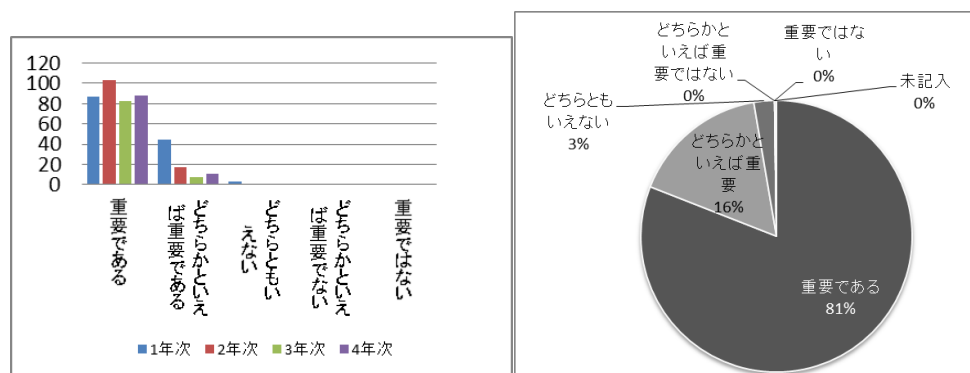 120
100
80
60
40
20
0
重要である
どちらかといえ
ば重要である
どちらともい
えない
どちらかといえ
ば重要でない
重要ではない
1年次 2年次 3年次 4年次
どちらかと
いえば重
要ではない
0%
重要ではな
い
0%
未記入
0%
どちらとも
いえない
3%
どちらかと
いえば重
要
16%
重要である
81%